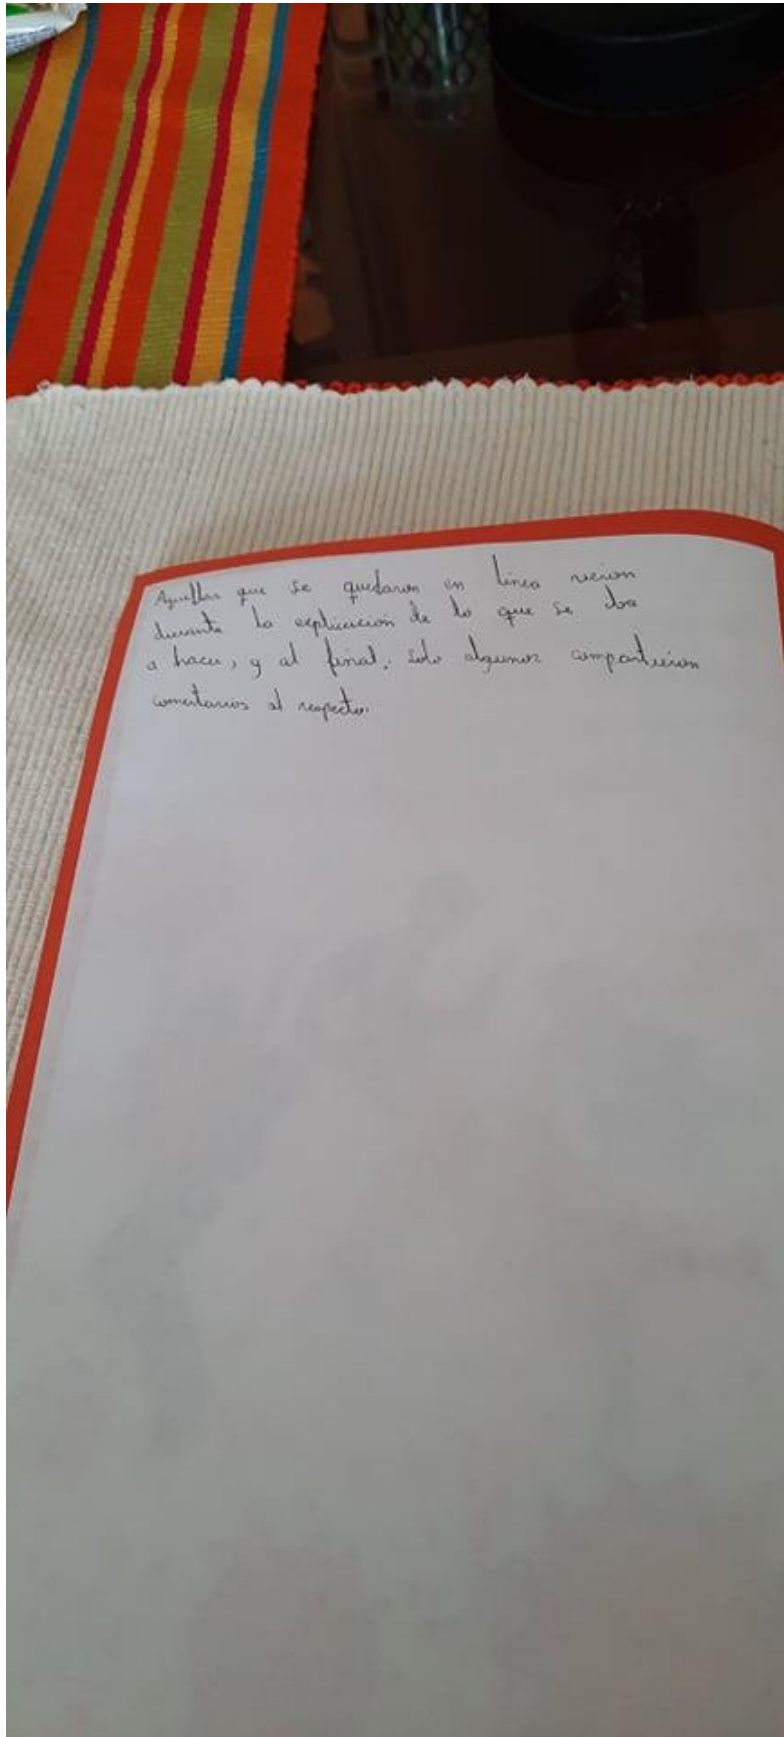 Aquellos que se quedaron en línea reieron
durante la explicación de lo que se iba
a hacer, y al final, solo algunos compartieron
comentarios al respecto.